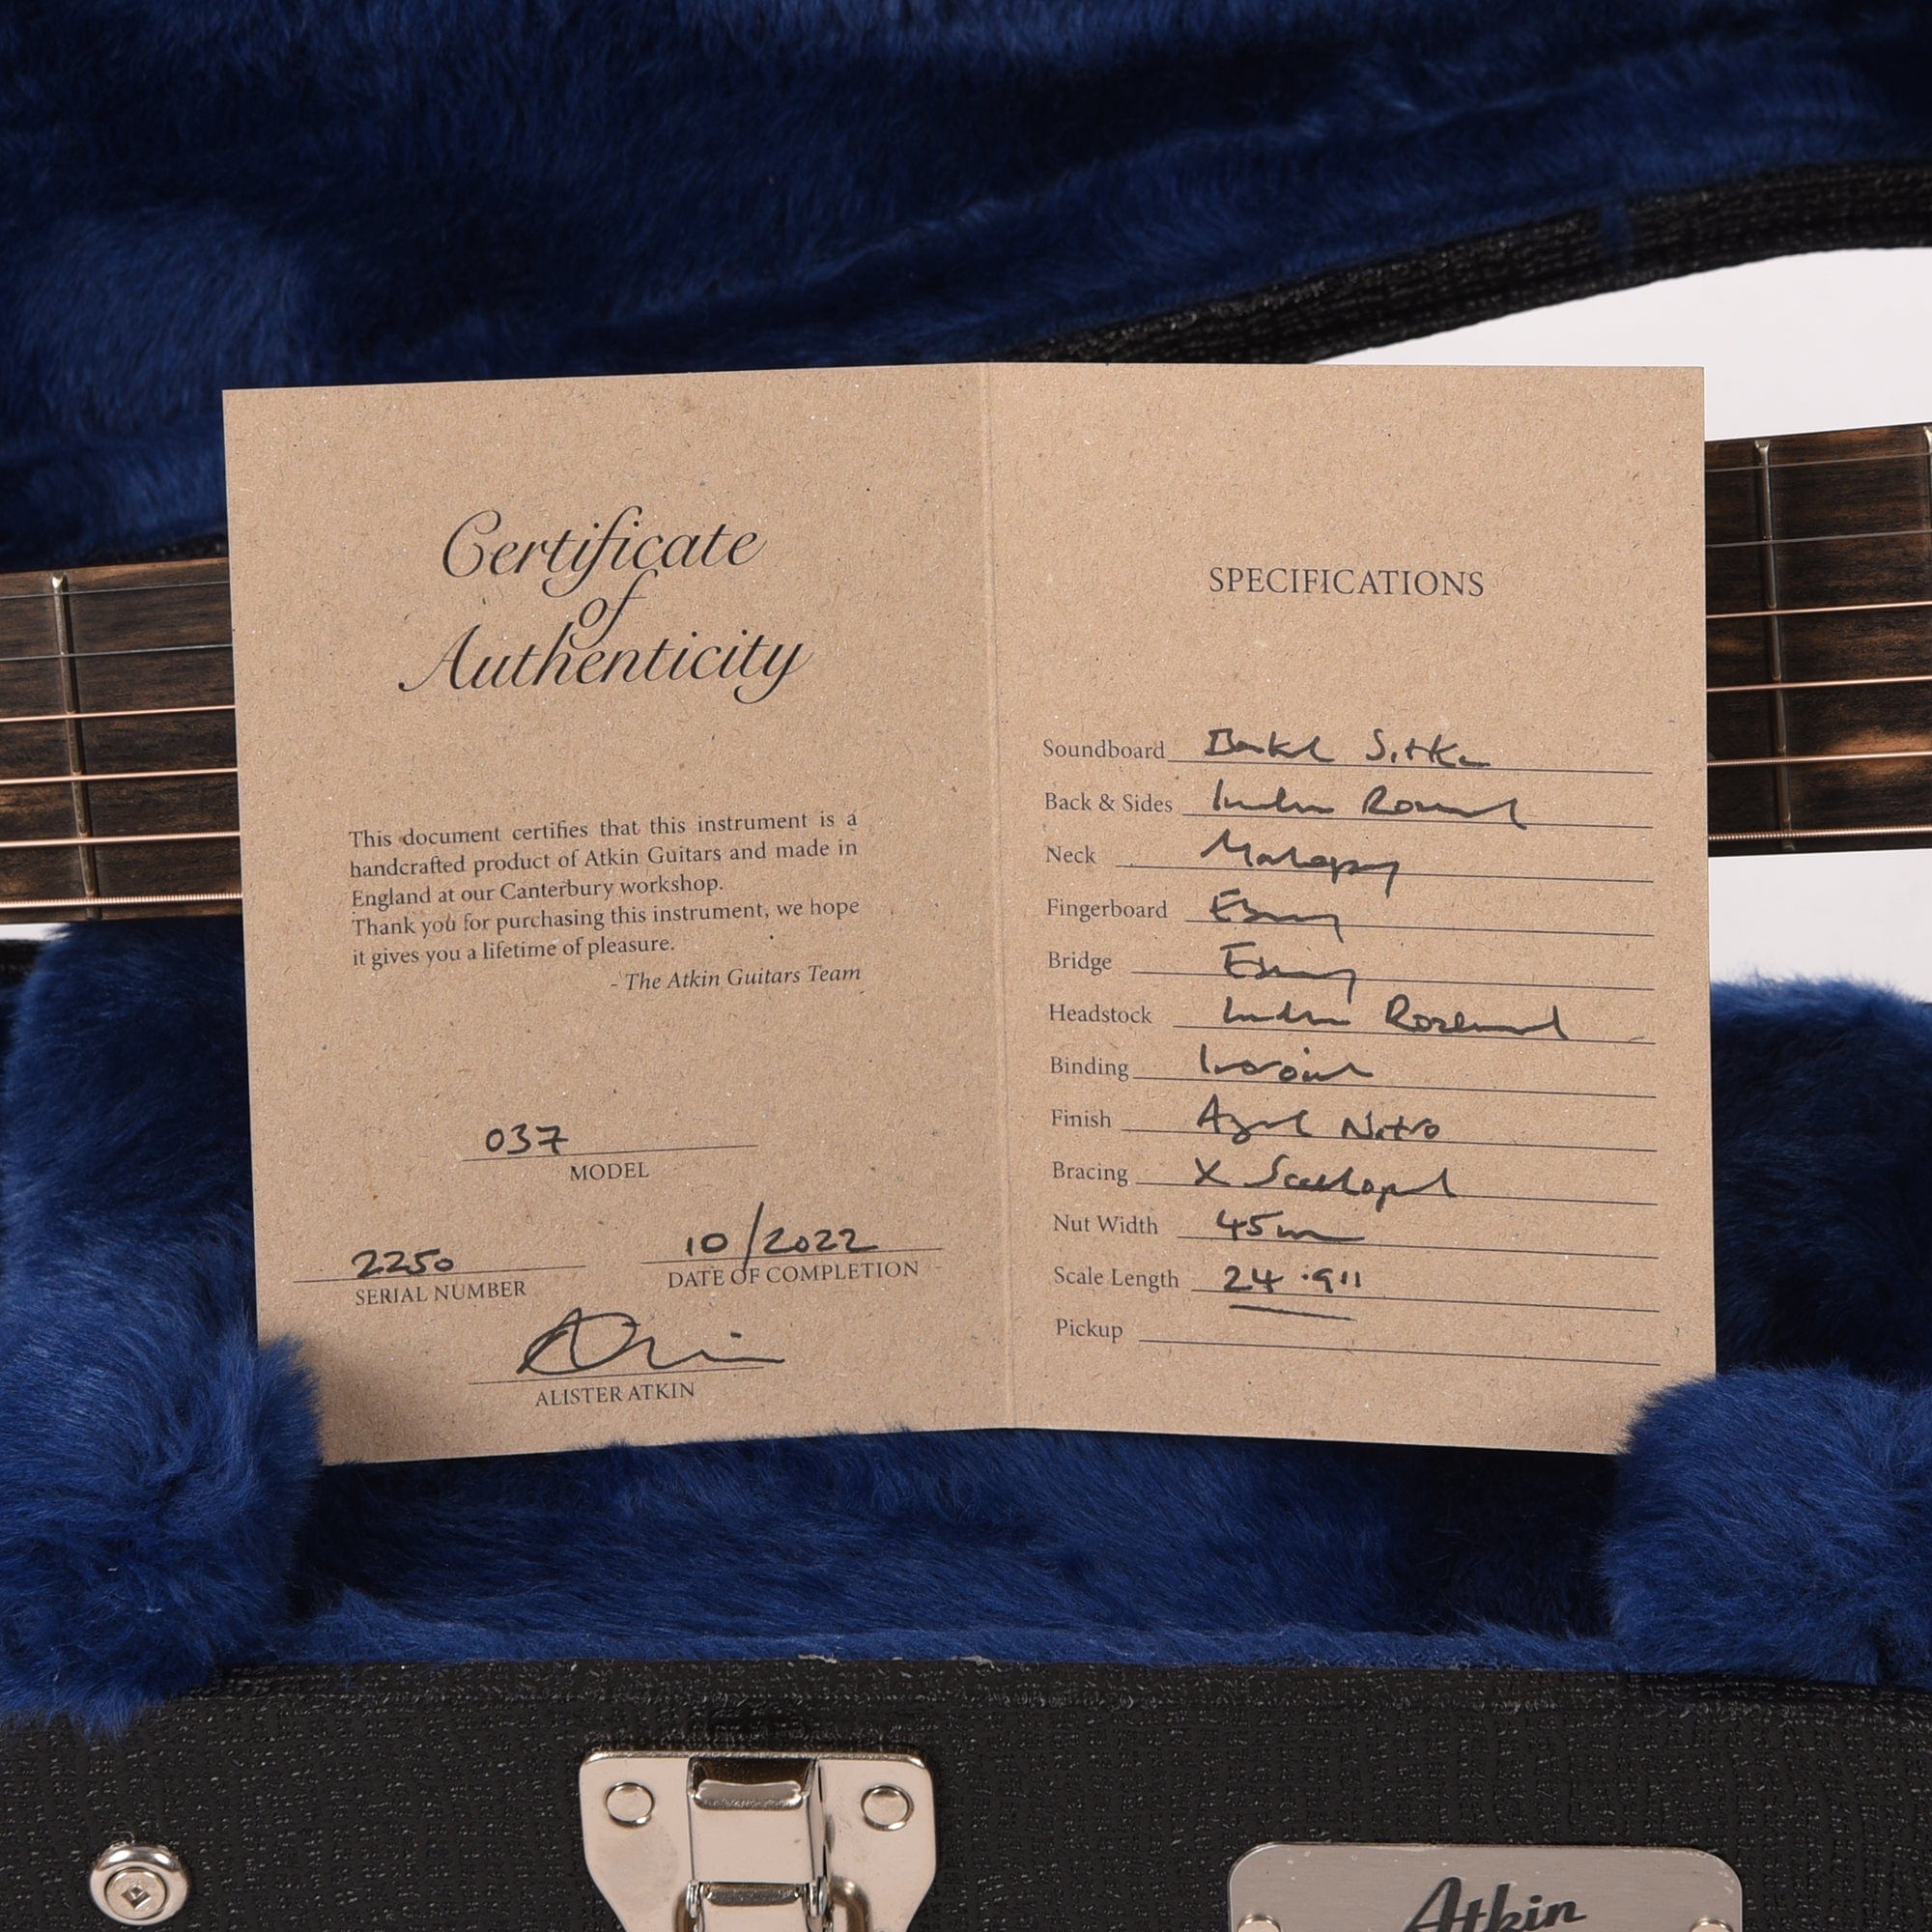 Certificate
of
Authenticity
This document certifies that this instrument is a
handcrafted product of Atkin Guitars and made in
England at our Canterbury workshop.
Thank you for purchasing this instrument, we hope
it gives you a lifetime of pleasure.
- The Atkin Guitars Team
037
MODEL
2250
SERIAL NUMBER
10/2022
DATE OF COMPLETION
ALISTER ATKIN
SPECIFICATIONS
Soundboard Baked Sitka
Back & Sides Indian Rosewood
Neck Mahogany
Fingerboard Ebony
Bridge Ebony
Headstock Indian Rosewood
Binding Ivoroid
Finish Aged Nitro
Bracing X Scalloped
Nut Width 45mm
Scale Length 24.9"
Pickup
Atkin